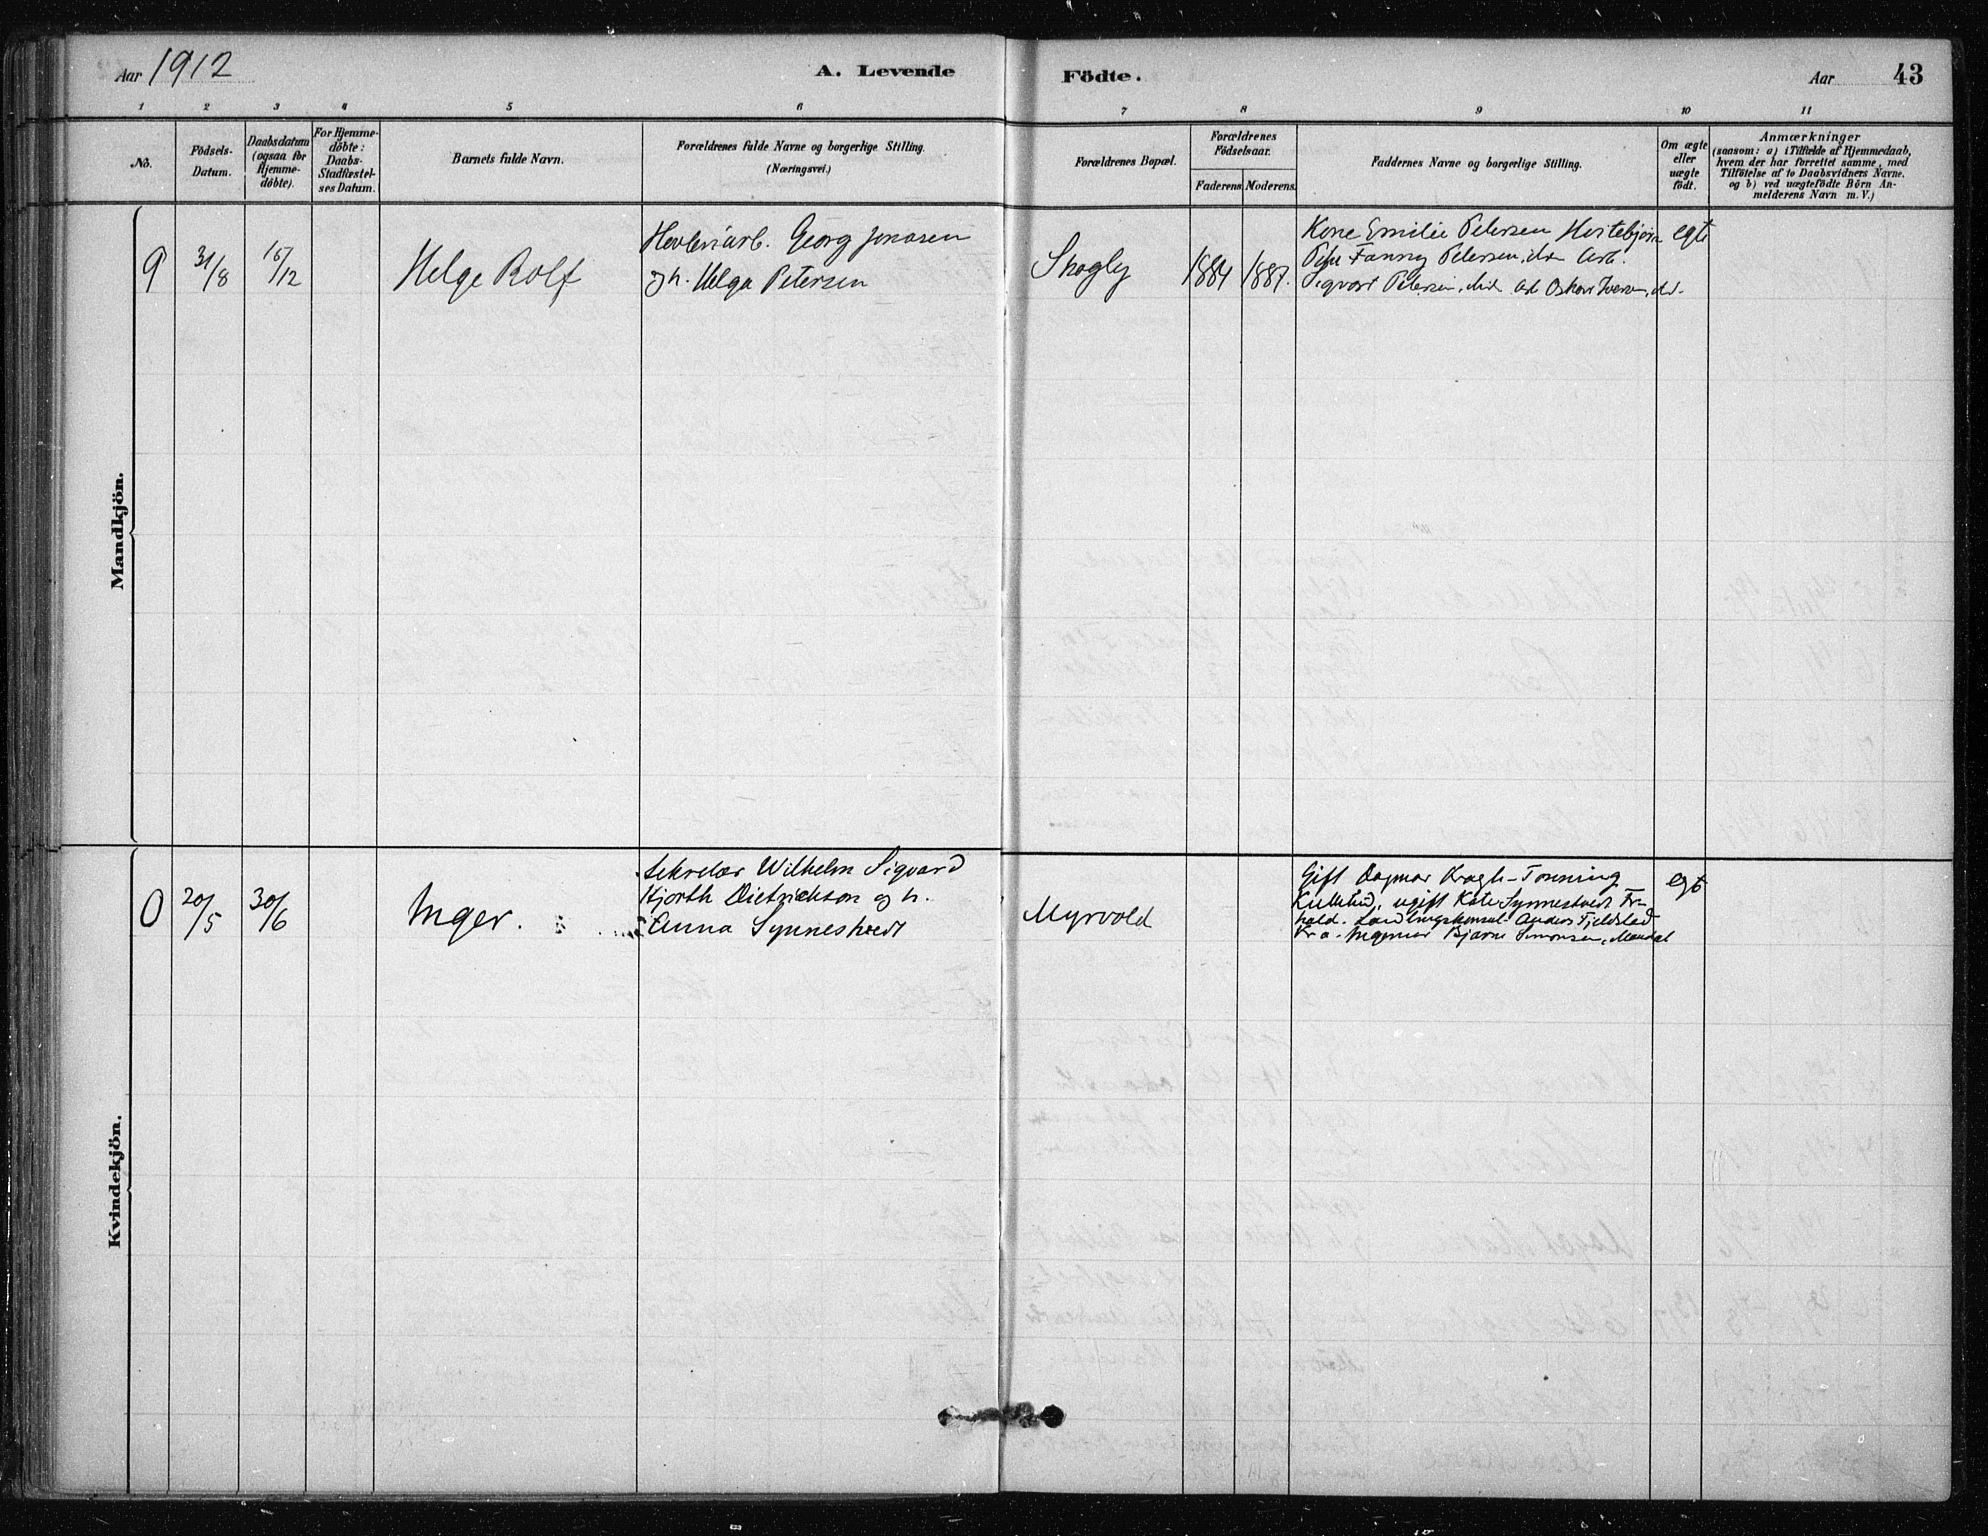 Aar 1912
A. Levende
Födte.
Aar 43
1 2 3 4 5 6 7 8 9 10 11
Nò.
Födsels-
Datum.
Daabsdatum
(ogsaa for
Hjemme-
döbte).
For Hjemme-
döbte:
Daabs-
Stadfæstel-
ses Datum.
Barnets fulde Navn.
Forældrenes fulde Navne og borgerlige Stilling.
(Næringsvei.)
Forældrenes Bopæl.
Forældrenes
Födselsaar.
Faderens Moderens.
Faddernes Navne og borgerlige Stilling.
Om ægte
eller
uægte
födt.
Anmærkninger
(saasom: a) i Tilfælde af Hjemmedaab,
hvem der har forrettet samme, med
Tilföielse af to Daabsvidners Navne,
og b) ved uægtefödte Börn An-
melderens Navn m. V.)
Mandkjön.
9 31/8 15/12
Helge Rolf
Høvleriarb. Georg Jonasen
og h. Helga Petersen
Skogly
1884 1887.
Kone Emilie Petersen
Pike Fanny Petersen, Arb.
Sigvart Petersen, Oskar Iversen, do.
egte
Kvindekjön.
0 20/5 30/6
Inger.
Sekretær Wilhelm Sigvard
Hjorth Dietrichson og h.
Anna Synnestvedt
Myrvold
Gift Dagmar Kragh-Tonning
ugift Kate Synnestvedt Fr-
hald. Anders Fjeldstad
Fr.a. Ingeniør Bjarne Simonsen, Mandal
egte